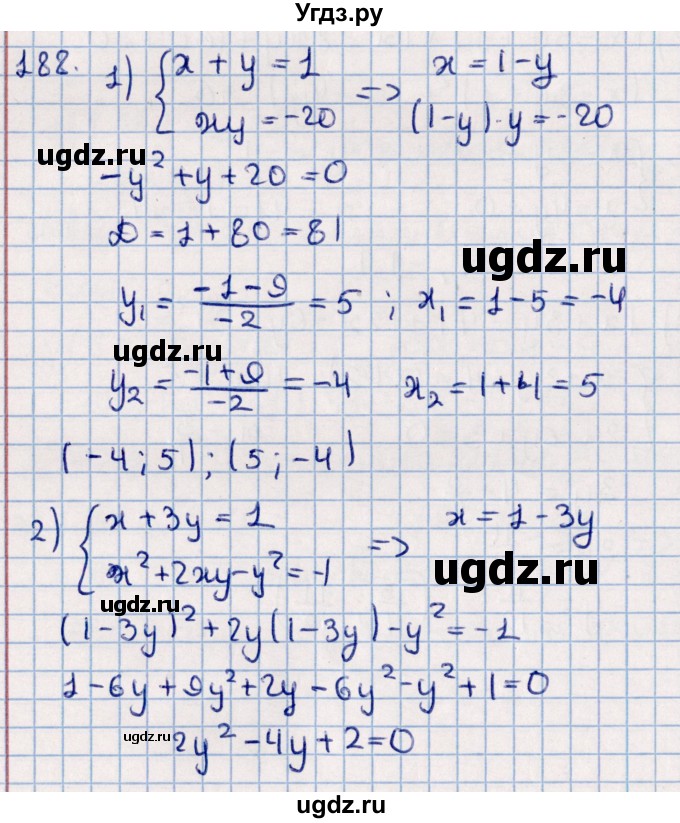 Угдз.ру
188. 1) { x + y = 1 => x = 1 - y
xy = -20 (1-y)·y = -20
ugdz.ru
-y² + y + 20 = 0
D = 1 + 80 = 81
ugdz.ru
y₁ = (-1-9)/(-2) = 5 ; x₁ = 1 - 5 = -4
ugdz.ru
y₂ = (-1+9)/(-2) = -4 x₂ = 1 + 4 = 5
(-4; 5); (5; -4)
2) { x + 3y = 1 => x = 1 - 3y
x² + 2xy - y² = -1
ugdz.ru
ugdz.ru
(1-3y)² + 2y(1-3y) - y² = -1
1 - 6y + 9y² + 2y - 6y² - y² + 1 = 0
ugdz.ru
2y² - 4y + 2 = 0
ugdz.ru